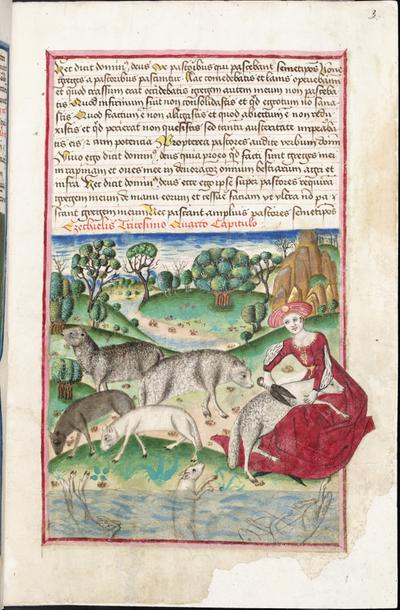 3
Hec dicit dominus deus Ve pastoribus qui pascebant semetipsos Nonne
greges a pastoribus pascuntur Lac comedebatis et lanis operiebamini
et quod crassum erat occidebatis gregem autem meum non pasceba
tis Quod infirmum fuit non consolidastis et quod egrotum non sana
stis Quod fractum est non alligastis et quod abiectum est non redu
xistis et quod perierat non quesistis sed cum austeritate imperaba
tis eis et cum potentia Propterea pastores audite verbum domini
Vivo ego dicit dominus deus quia pro eo quod facti sunt greges mei
in rapinam et oves mee in devorationem omnium bestiarum agri et
infra Hec dicit dominus deus ecce ego ipse super pastores requiram
gregem meum de manu eorum et cessare faciam ut ultra non pa
scant gregem meum Nec pascant amplius pastores semetipsos
Ezechielis Tricesimo Quarto Capitulo